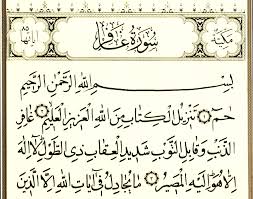 مكية
سورة غافر
آياتها ٨٥
بسم الله الرحمن الرحيم
حم ۝ تنزيل الكتاب من الله العزيز العليم ۝ غافر
الذنب وقابل التوب شديد العقاب ذي الطول لا إله
إلا هو إليه المصير ۝ ما يجادل في آيات الله إلا الذين